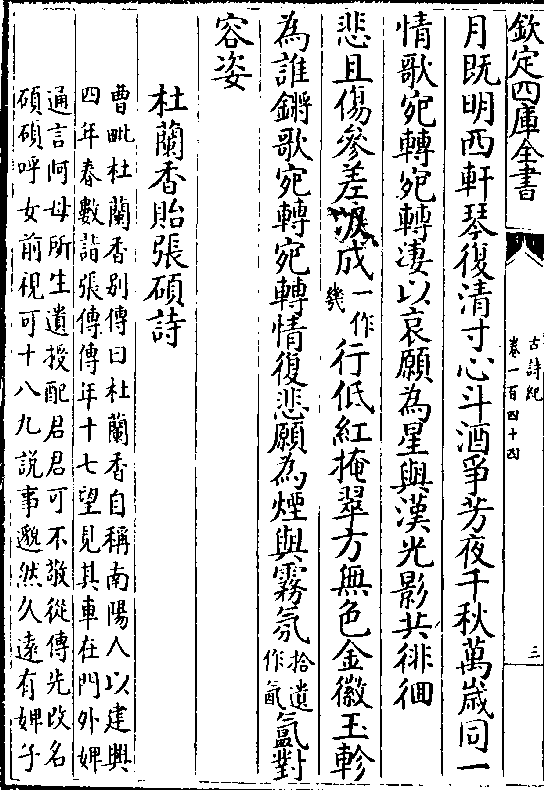 欽定四庫全書
古詩紀
卷一百四十四
三
月既明西軒琴復清寸心斗酒爭芳夜千秋萬歲同一
情歌宛轉宛轉淒以哀願為星與漢光影共徘徊
悲且傷參差淚成一作幾行低紅掩翠方無色金徽玉軫
為誰鏘歌宛轉宛轉情復悲願為煙與霧氛拾遺作氤氳對
容姿
杜蘭香貽張碩詩
曹毗杜蘭香别傳曰杜蘭香自稱南陽人以建興
四年春數詣張傳傳年十七望見其車在門外婢
通言阿母所生遣授配君君可不敬從傳先改名
碩碩呼女前視可十八九説事邈然久遠有婢子